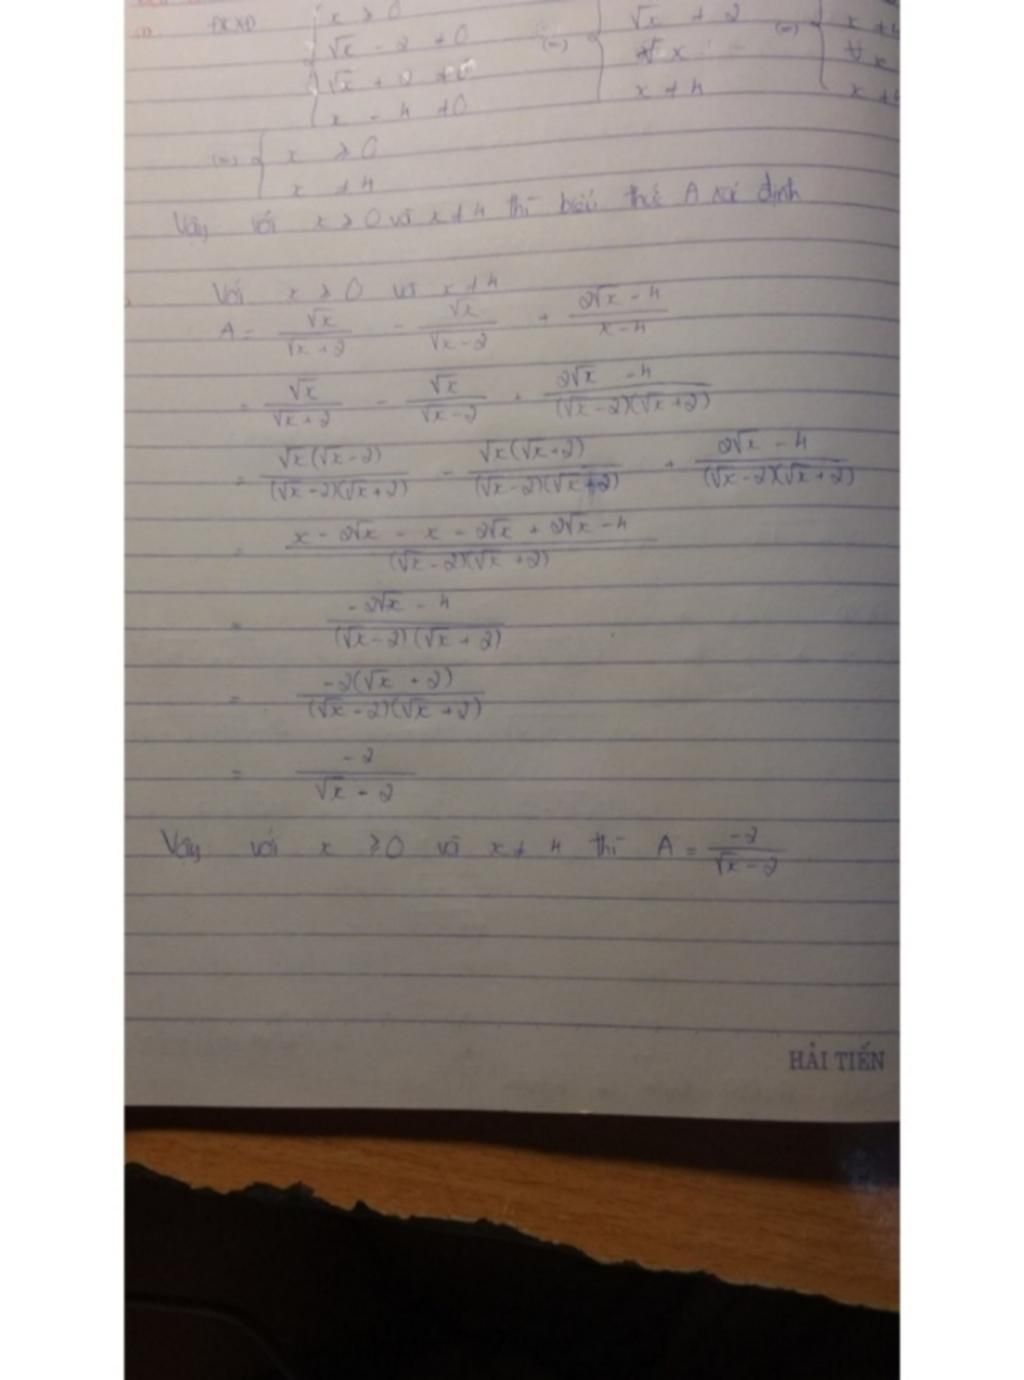 ĐKXĐ { x ≥ 0
√x - 2 ≠ 0
√x + 2 ≠ 0
x - 4 ≠ 0
(=) { √x ≠ 2
∀ x
x ≠ 4
(=) { x ≠ 4
∀ x
x ≠ 4
(=) { x ≥ 0
x ≠ 4
Vậy với x ≥ 0 và x ≠ 4 thì biểu thức A xác định
Với x ≥ 0 và x ≠ 4
A = √x/(√x + 2) - √x/(√x - 2) + (2√x - 4)/(x - 4)
= √x/(√x + 2) - √x/(√x - 2) + (2√x - 4)/((√x - 2)(√x + 2))
= √x(√x - 2)/((√x - 2)(√x + 2)) - √x(√x + 2)/((√x - 2)(√x + 2)) + (2√x - 4)/((√x - 2)(√x + 2))
= (x - 2√x - x - 2√x + 2√x - 4)/((√x - 2)(√x + 2))
= (-2√x - 4)/((√x - 2)(√x + 2))
= -2(√x + 2)/((√x - 2)(√x + 2))
= -2/(√x - 2)
Vậy với x ≥ 0 và x ≠ 4 thì A = -2/(√x - 2)
HẢI TIẾN